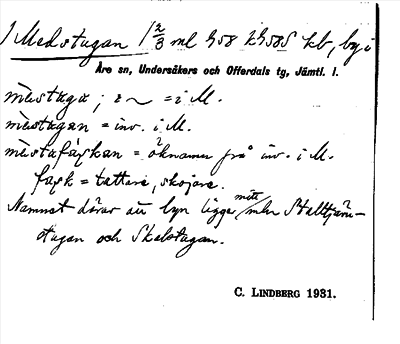 1 Medstugan 1 2/3 ml ... kb, by i
Åre sn, Undersåkers och Offerdals tg, Jämtl. l.
mèstuga; i ~ = i M.
mèstugan = inv. i M.
mèstafàskan = öknamn på inv. i M.
fask = tattare, skojare.
Namnet därav att byn ligger mitt mln Stalltjärn-
stugan och Skalstugan.
C. LINDBERG 1931.